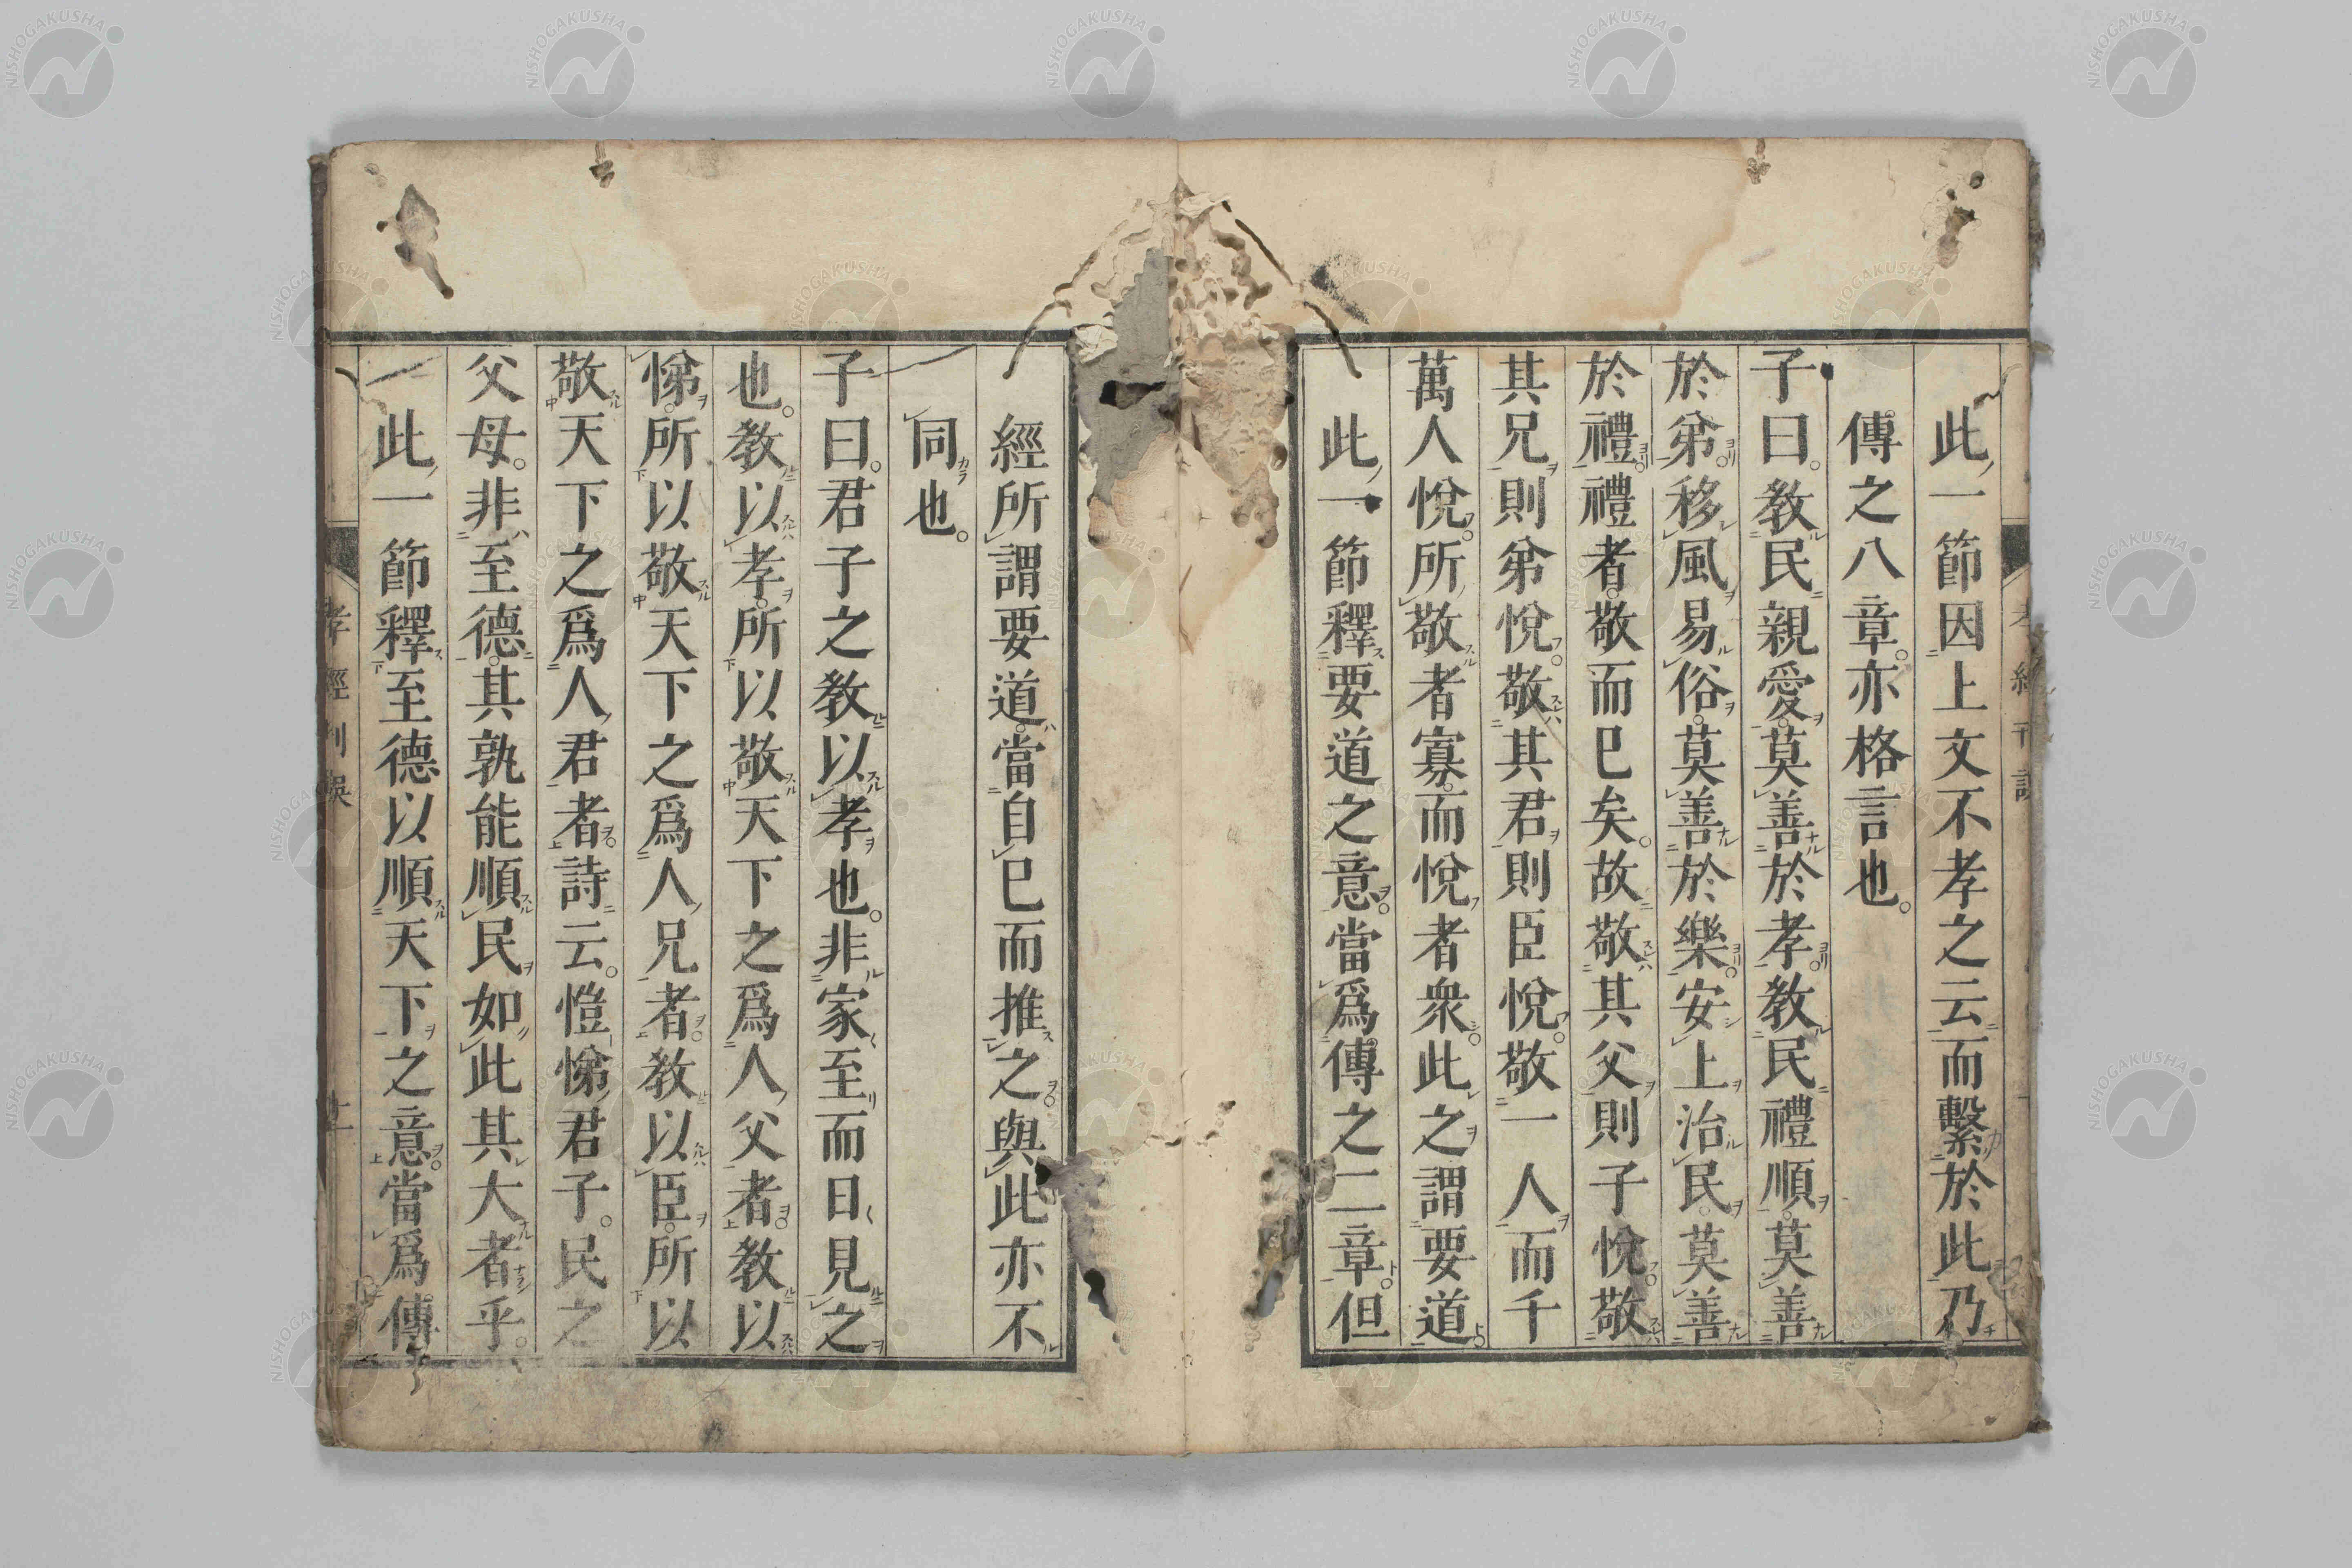 此一節因上文不孝之云而繫於此乃
傳之八章。亦格言也。
子曰。教民親愛。莫善於孝。教民禮順。莫善
於弟。移風易俗。莫善於樂。安上治民。莫善
於禮。禮者。敬而已矣。故敬其父則子悅。敬
其兄則弟悅。敬其君則臣悅。敬一人而千
萬人悅。所敬者寡。而悅者衆。此之謂要道。
此一節釋要道之意。當爲傳之二章。但
經所謂要道。當自已而推之。與此亦不
同也。
子曰。君子之教以孝也。非家至而日見之
也。教以孝。所以敬天下之爲人父者。教以
悌。所以敬天下之爲人兄者。教以臣。所以
敬天下之爲人君者。詩云。愷悌君子。民之
父母。非至德。其孰能順民如此其大者乎。
此一節釋至德以順天下之意。當爲傳
孝經刊誤